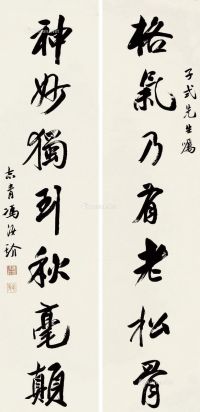 子式先生屬
格氣乃有老松骨
神妙獨到秋毫顛
志青馮汝玠